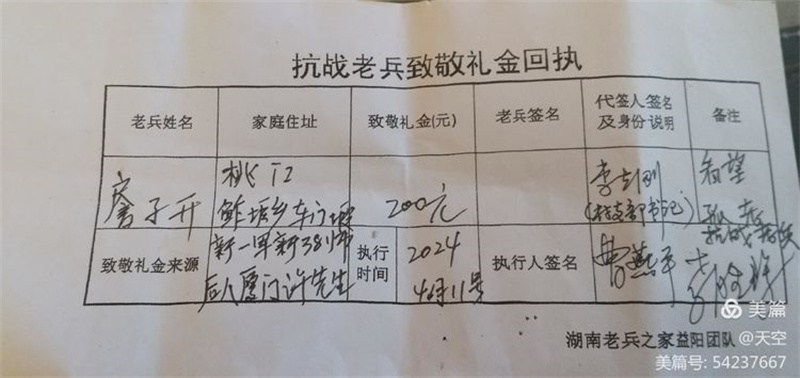 抗战老兵致敬礼金回执
老兵姓名 家庭住址 致敬礼金(元) 老兵签名 代签人签名及身份说明 备注
桃江
鲊埠乡车门塅
200元
(村支部书记)
看望
抗战老兵
致敬礼金来源
新一军新38师
后人厦门许先生
执行时间
2024
4月11号
执行人签名
曹燕平
湖南老兵之家益阳团队
美篇
@天空
美篇号: 54237667